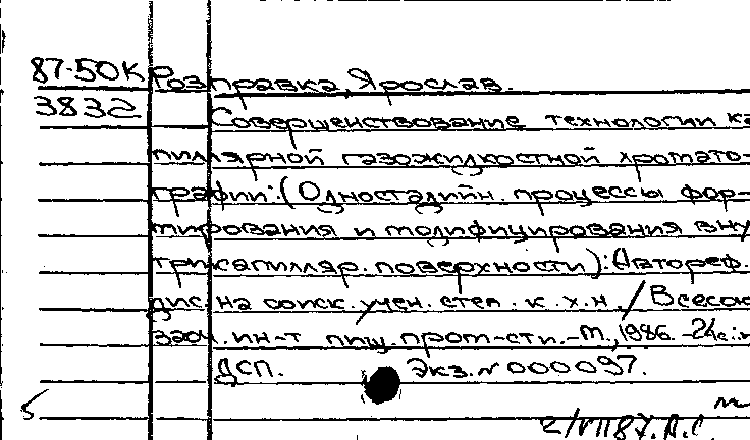 87-50К Розправка, Ярослав.
3832 Совершенствование технологии ка
пиллярной газожидкостной хромато-
графии: (Одностадийн. процессы фор-
мирования и модифицирования вну
трикапилляр. поверхности): Автореф.
дис. на соиск. учен. степ. к. х. н. / Всесоюз
заоч. ин-т пищ. пром-сти. - М., 1986. - 24 с.: и
ДСП. Экз. № 000097.
5
2/VII 87. А.С.